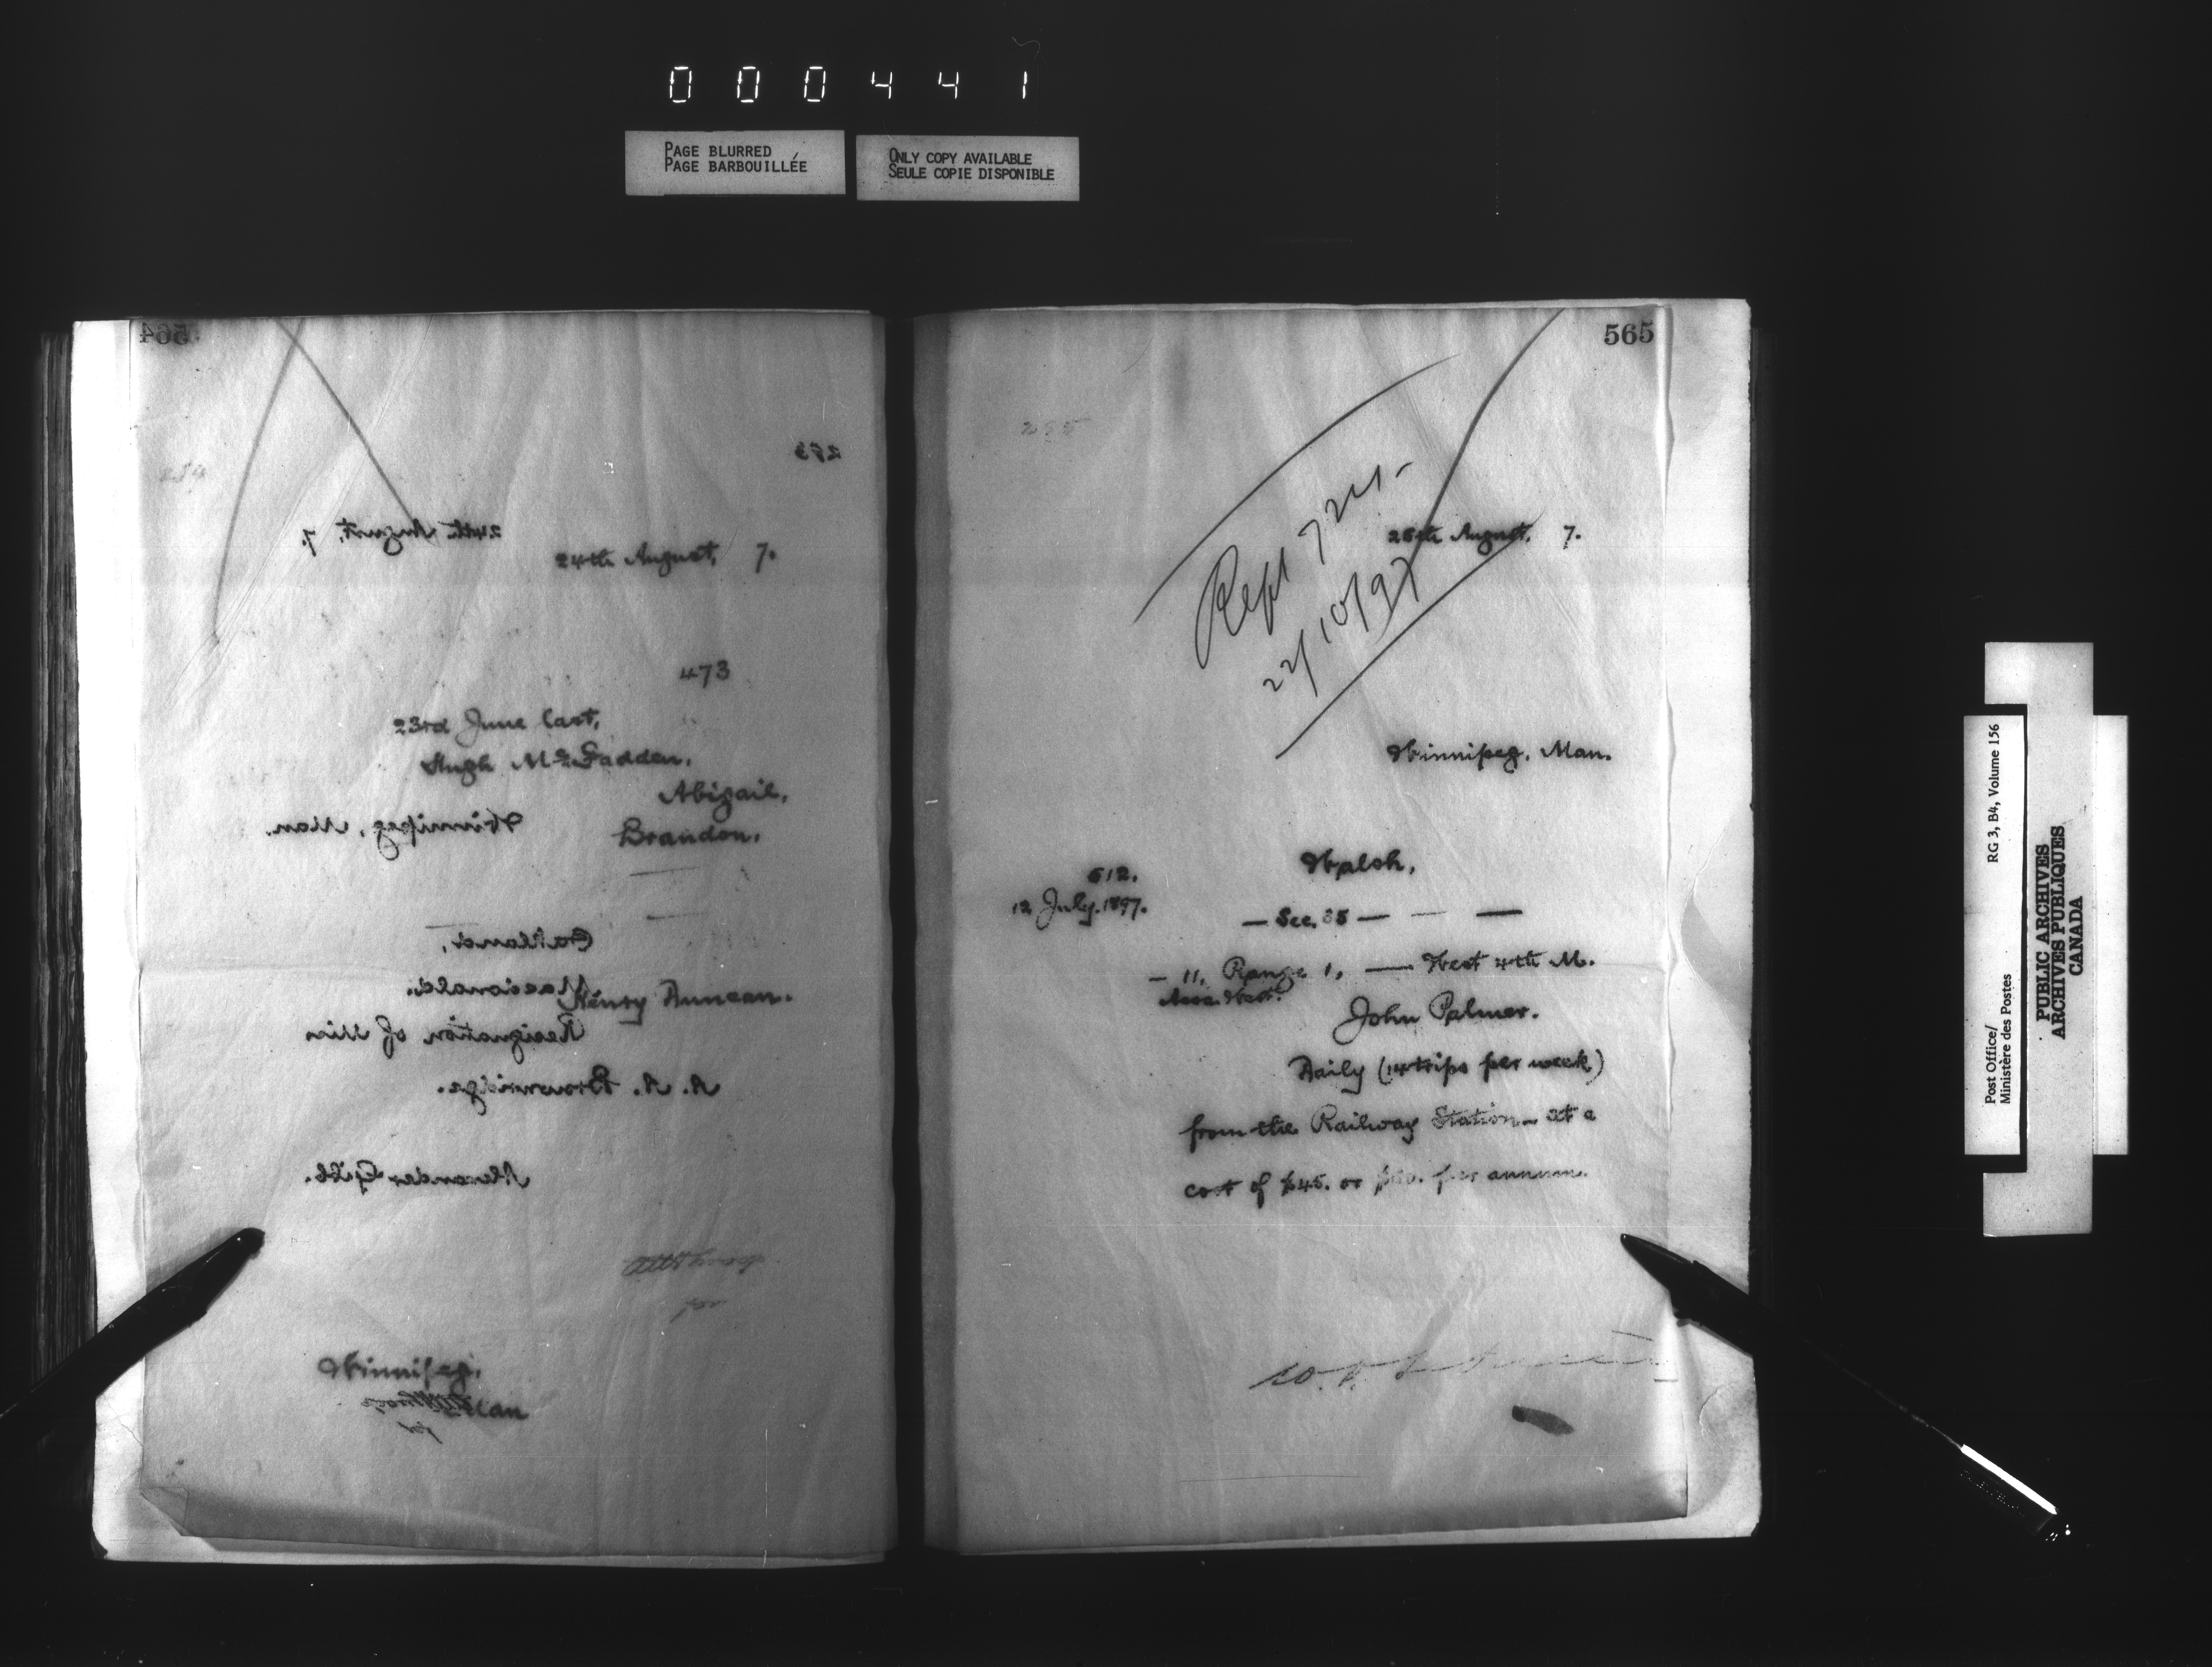 000441
PAGE BLURRED
PAGE BARBOUILLÉE
ONLY COPY AVAILABLE
SEULE COPIE DISPONIBLE
564
253
254
24th August, 7.
24th August, 7.
473
23rd June last,
Hugh McFadden,
Abigail,
Brandon.
Winnipeg, Man.
Oaklands,
Macdonald.
Henry Duncan.
Resignation of Miss
A. A. Brownridge.
Alexander Gibb.
for
Winnipeg,
Man
565
255
Rept 7
22/10/97
25th August, 7.
Winnipeg, Man.
512.
12 July. 1897.
Walsh,
— Sec. 35 — — —
— 11, Range 1, — West 4th M.
Assa. West.
John Palmer.
Daily (14 trips per week)
from the Railway Station — at a
cost of $45. or per annum.
Post Office/
Ministère des Postes
RG 3, B4, Volume 156
PUBLIC ARCHIVES
ARCHIVES PUBLIQUES
CANADA